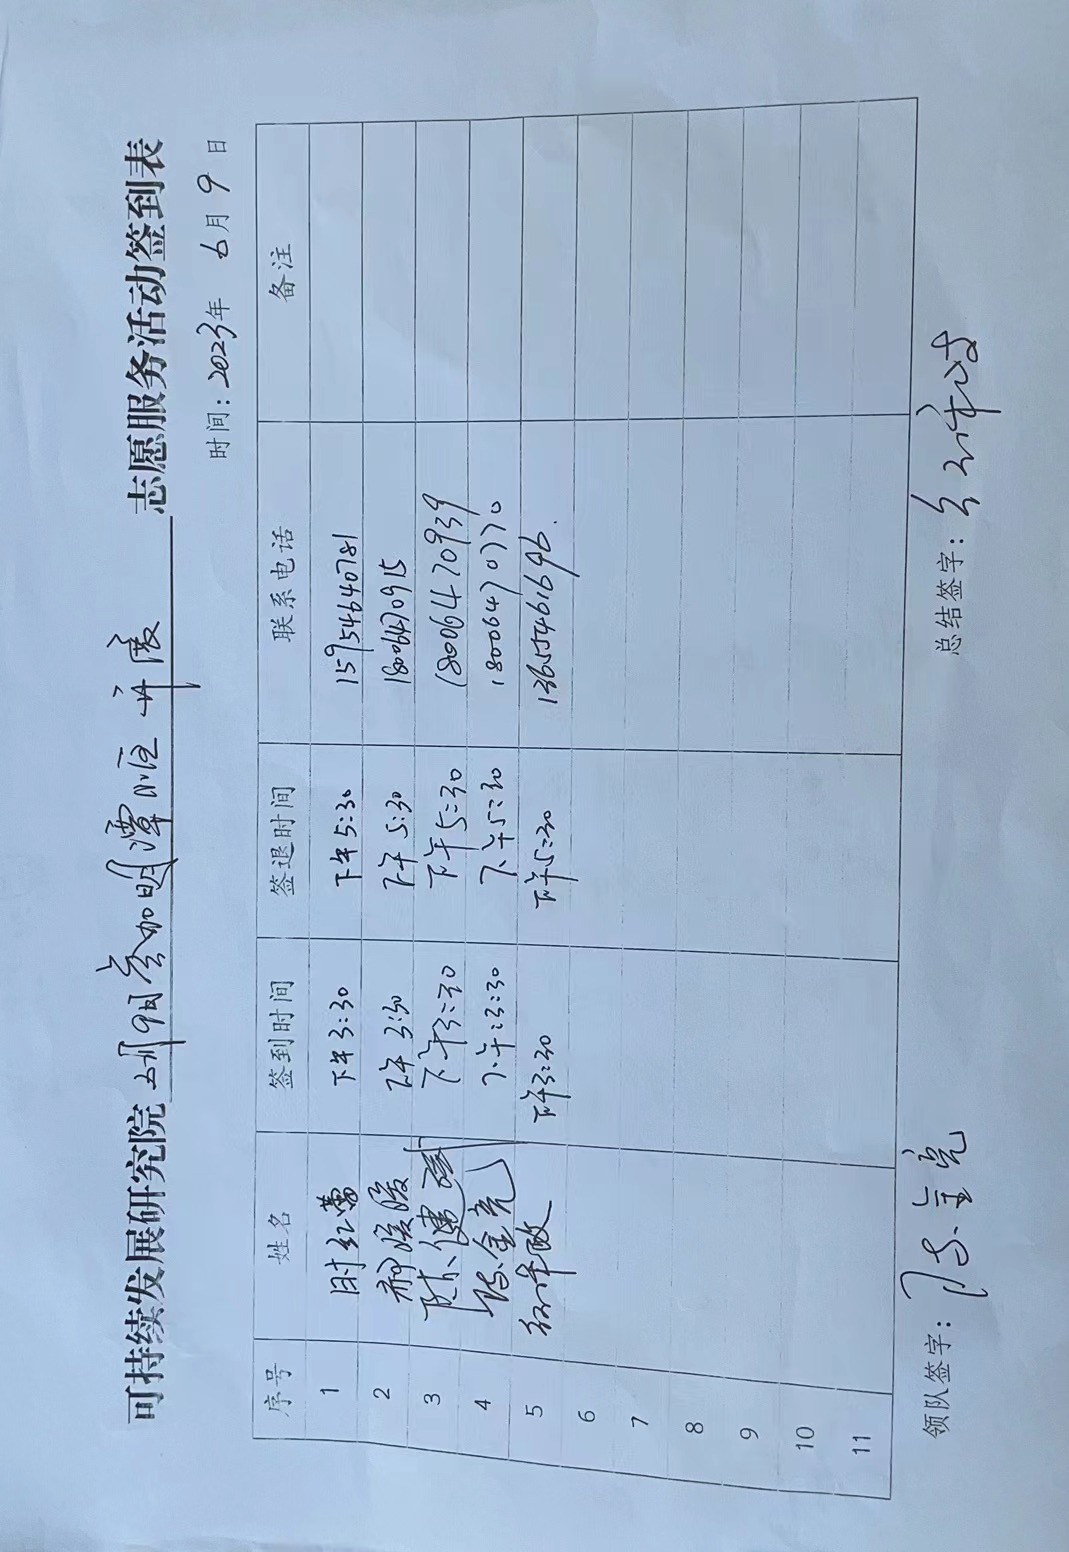 可持续发展研究院 参加明潭 志愿服务活动签到表
时间：2023年 6月 9日
序号 姓名 签到时间 签退时间 联系电话 备注
1 时红蕾 下午3:30 下午5:30 15954640781
2 暖暖 下午3:30 下午5:30 18006470915
3 陈健 下午3:30 下午5:30 18006470939
4 陈金亮 下午3:30 下午5:30 18006470770
5 下午3:30 下午5:30 13655461696
6
7
8
9
10
11
领队签字：陈金亮 总结签字：